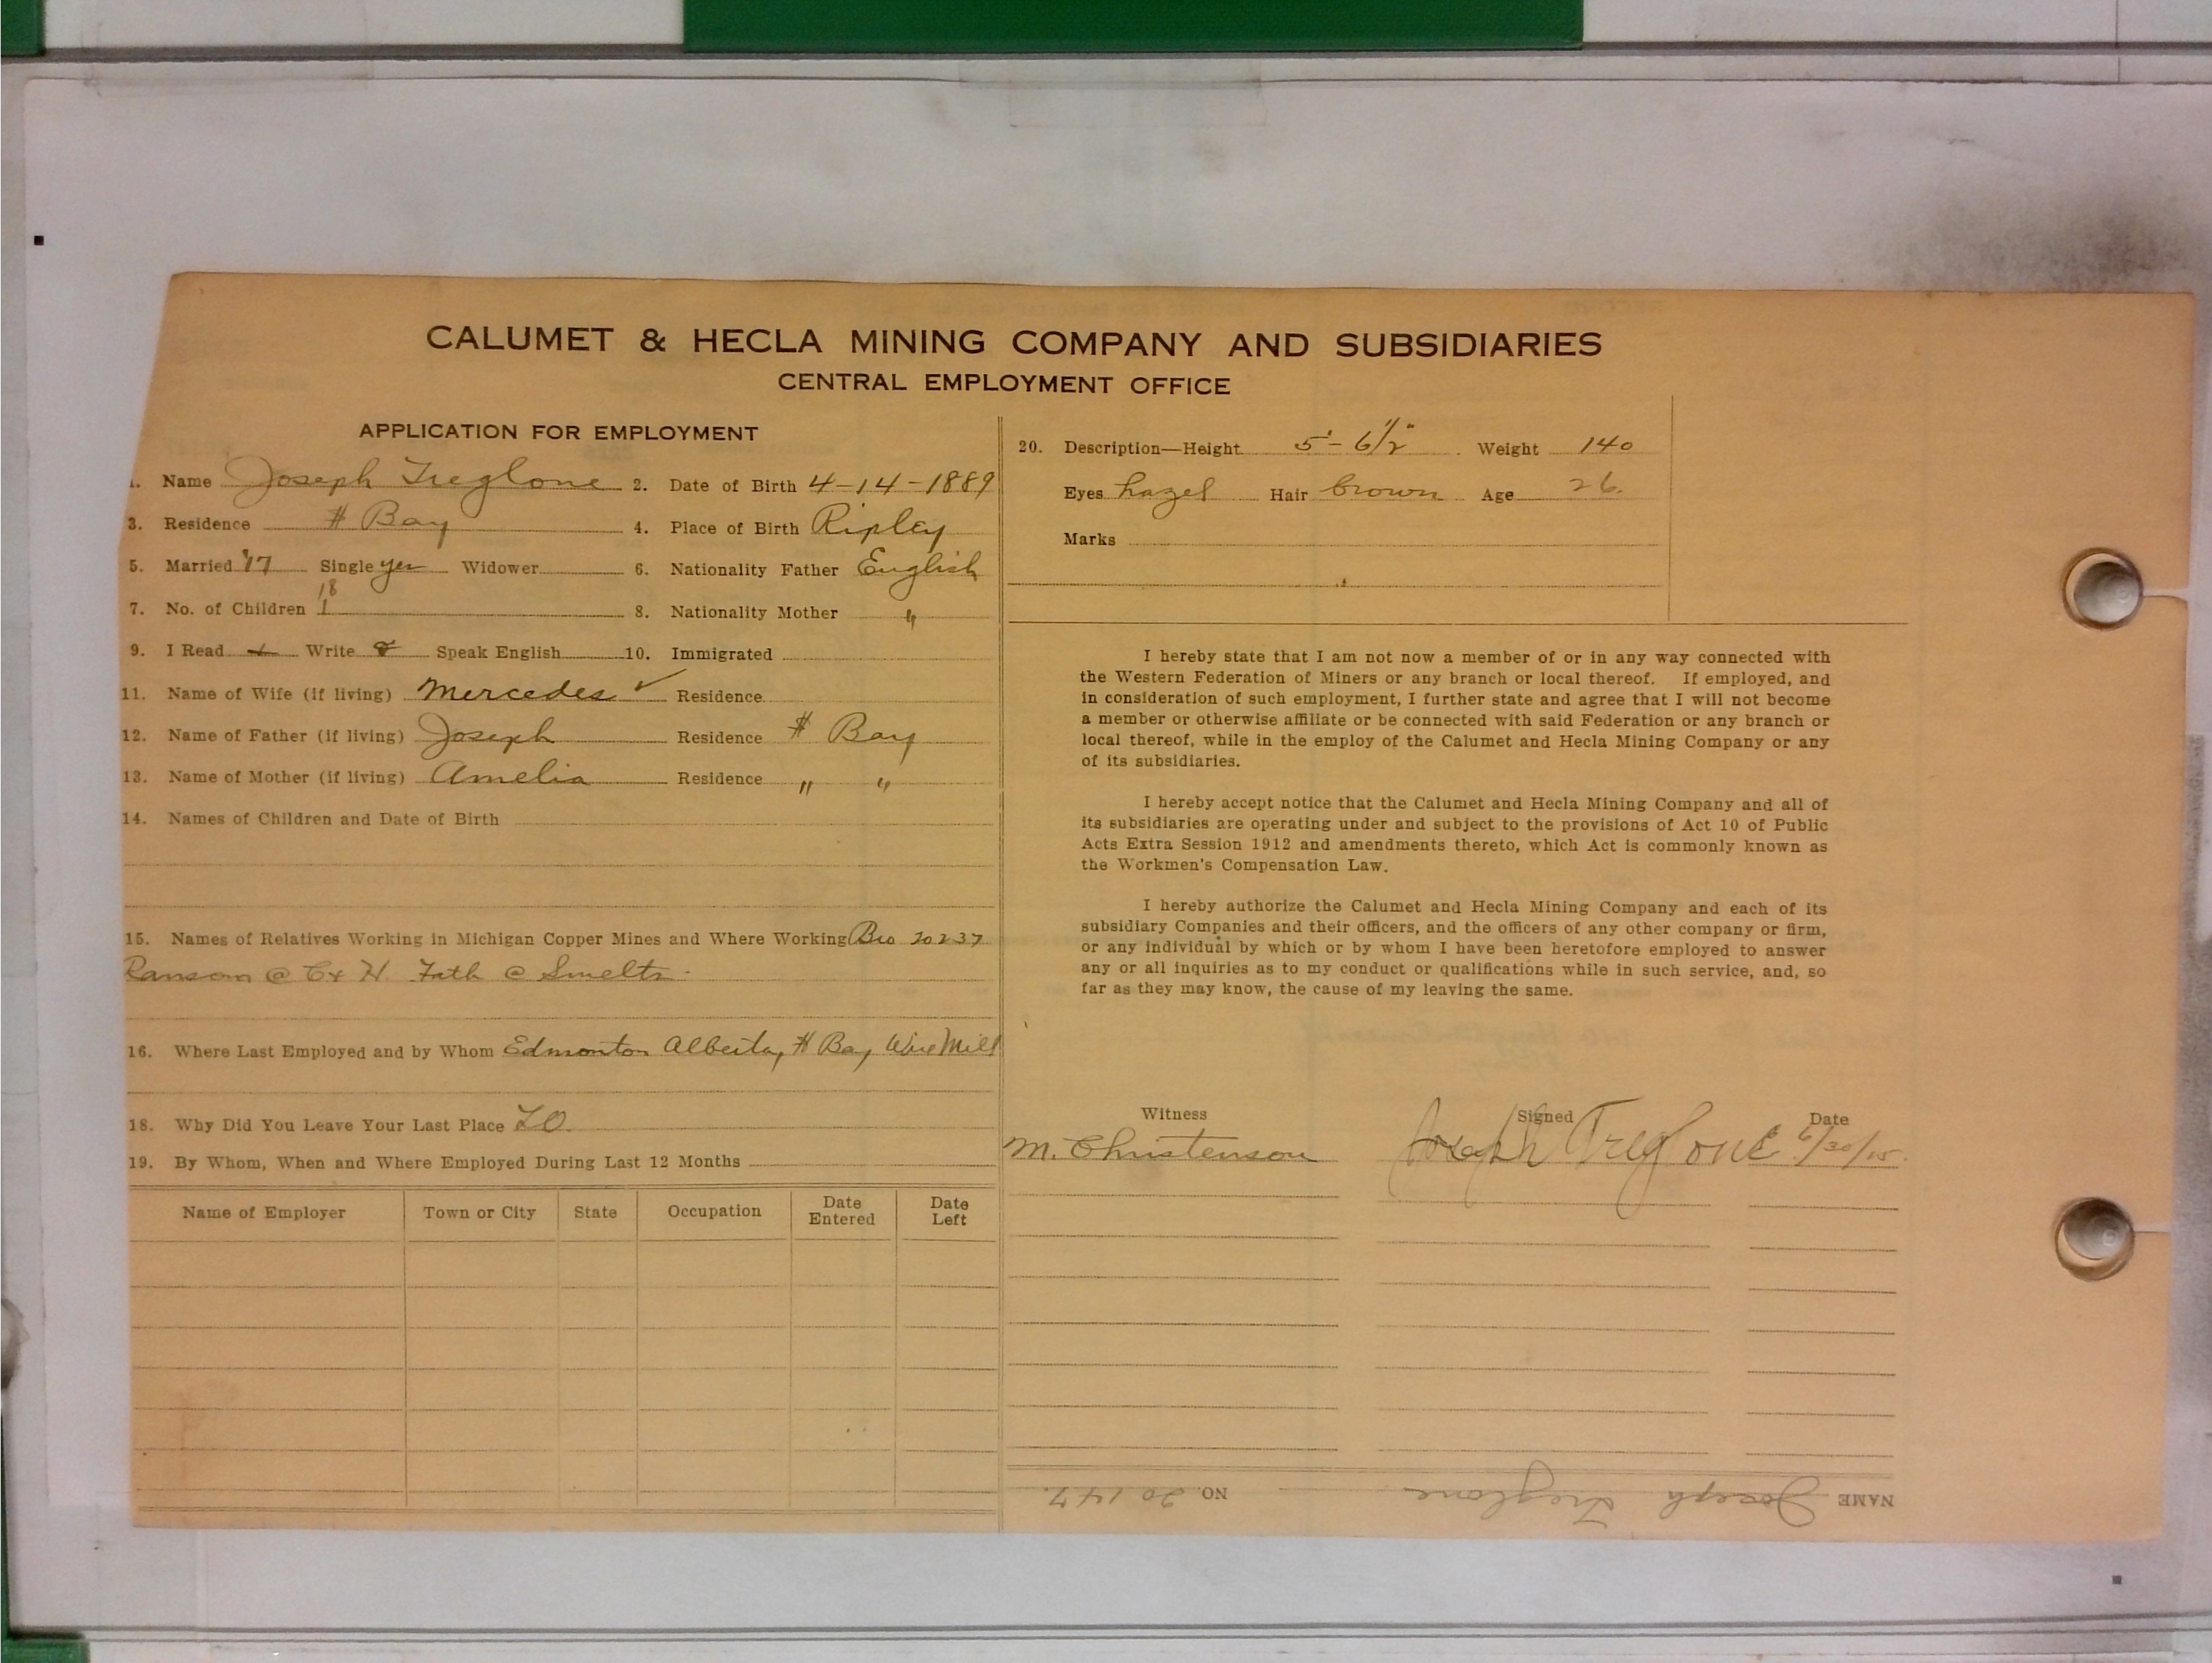 CALUMET & HECLA MINING COMPANY AND SUBSIDIARIES
CENTRAL EMPLOYMENT OFFICE
APPLICATION FOR EMPLOYMENT
1. Name Joseph Treglone 2. Date of Birth 4-14-1889
3. Residence H Bay 4. Place of Birth Ripley
5. Married '17 Single yes Widower 6. Nationality Father English
18
7. No. of Children 1 8. Nationality Mother "
9. I Read Write Speak English 10. Immigrated
11. Name of Wife (if living) Mercedes ✓ Residence
12. Name of Father (if living) Joseph Residence H Bay
13. Name of Mother (if living) Amelia Residence " "
14. Names of Children and Date of Birth
15. Names of Relatives Working in Michigan Copper Mines and Where Working Bro 20237
Ransom @ C & H. Fath @ Smeltr.
16. Where Last Employed and by Whom Edmonton Alberta, H Bay Wire Mill
18. Why Did You Leave Your Last Place LO.
19. By Whom, When and Where Employed During Last 12 Months
Name of Employer Town or City State Occupation Date Entered Date Left
20. Description—Height 5'-6½" Weight 140
Eyes hazel Hair brown Age 26.
Marks
I hereby state that I am not now a member of or in any way connected with
the Western Federation of Miners or any branch or local thereof. If employed, and
in consideration of such employment, I further state and agree that I will not become
a member or otherwise affiliate or be connected with said Federation or any branch or
local thereof, while in the employ of the Calumet and Hecla Mining Company or any
of its subsidiaries.
I hereby accept notice that the Calumet and Hecla Mining Company and all of
its subsidiaries are operating under and subject to the provisions of Act 10 of Public
Acts Extra Session 1912 and amendments thereto, which Act is commonly known as
the Workmen's Compensation Law.
I hereby authorize the Calumet and Hecla Mining Company and each of its
subsidiary Companies and their officers, and the officers of any other company or firm,
or any individual by which or by whom I have been heretofore employed to answer
any or all inquiries as to my conduct or qualifications while in such service, and, so
far as they may know, the cause of my leaving the same.
Witness Signed Date
M. Christenson Joseph Treglone 6/30/15.
NAME Joseph Treglone NO. 20147.